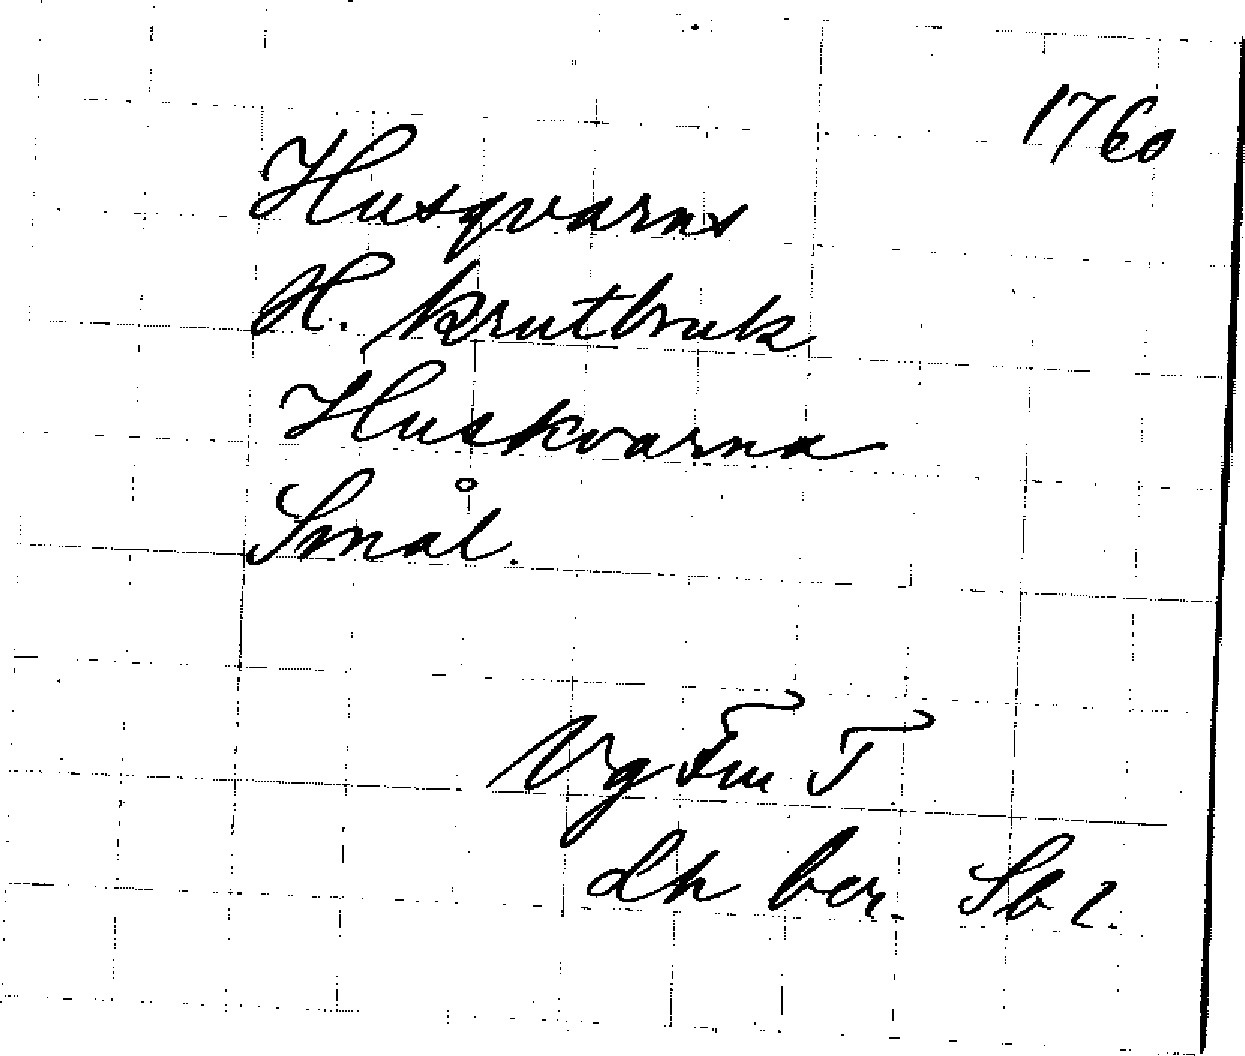 1760
Husqvarns
H. krutbruk
Huskvarna
Smål.
Vg Fm T
dh ber. Sb